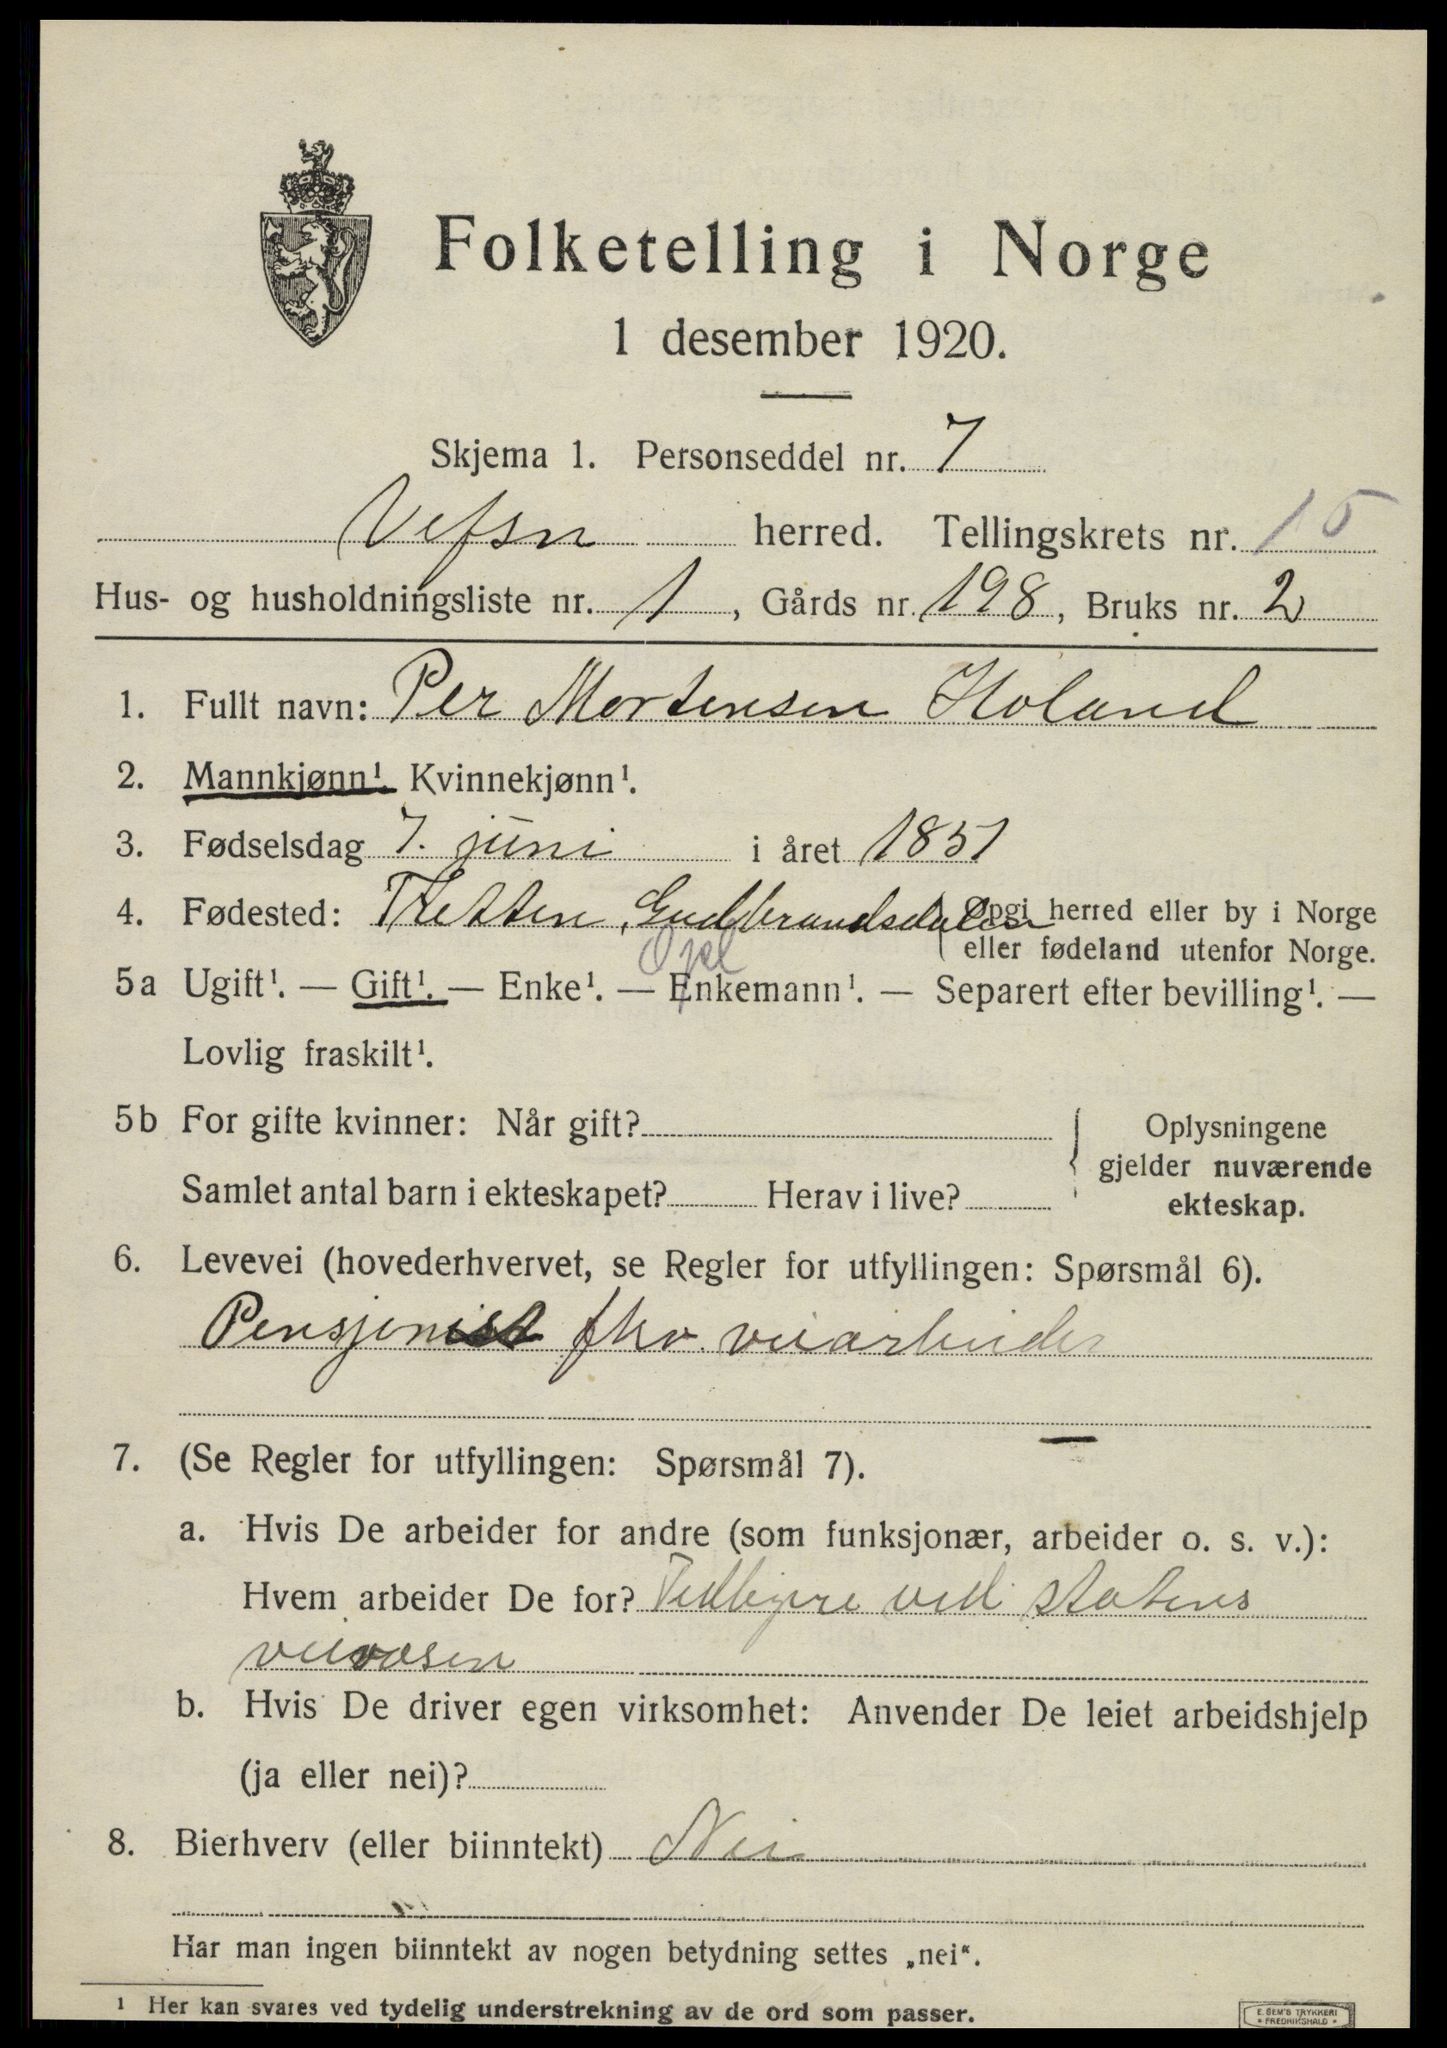 Folketelling i Norge
1 desember 1920.
Skjema 1. Personseddel nr. 7
Vefsn herred. Tellingskrets nr. 15
Hus- og husholdningsliste nr. 1, Gårds nr. 198, Bruks nr. 2
1. Fullt navn: Per Mortensen Holand
2. Mannkjønn¹. Kvinnekjønn¹.
3. Fødselsdag 7. juni i året 1851
4. Fødested: Tretten, Gudbrandsdalen { Opgi herred eller by i Norge
eller fødeland utenfor Norge.
Opl
5a Ugift¹. — Gift¹. — Enke¹. — Enkemann¹. — Separert efter bevilling¹. —
Lovlig fraskilt¹.
5b For gifte kvinner: Når gift?
Samlet antal barn i ekteskapet? Herav i live?
Oplysningene
gjelder nuværende
ekteskap.
6. Levevei (hovederhvervet, se Regler for utfyllingen: Spørsmål 6).
Pensjonist fhv. veiarbeider
7. (Se Regler for utfyllingen: Spørsmål 7).
a. Hvis De arbeider for andre (som funksjonær, arbeider o. s. v.):
Hvem arbeider De for? Tidligere ved statens
veivæsen
b. Hvis De driver egen virksomhet: Anvender De leiet arbeidshjelp
(ja eller nei)?
8. Bierhverv (eller biinntekt) Nei
Har man ingen biinntekt av nogen betydning settes „nei“.
¹ Her kan svares ved tydelig understrekning av de ord som passer.
E. SEM'S TRYKKERI
• FREDRIKSHALD •